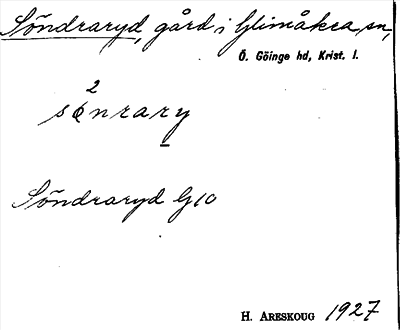 Söndraryd, gård i Glimåkra sn,
Ö. Göinge hd, Krist. l.
2
sönrary
Söndraryd G10
H. ARESKOUG 1927